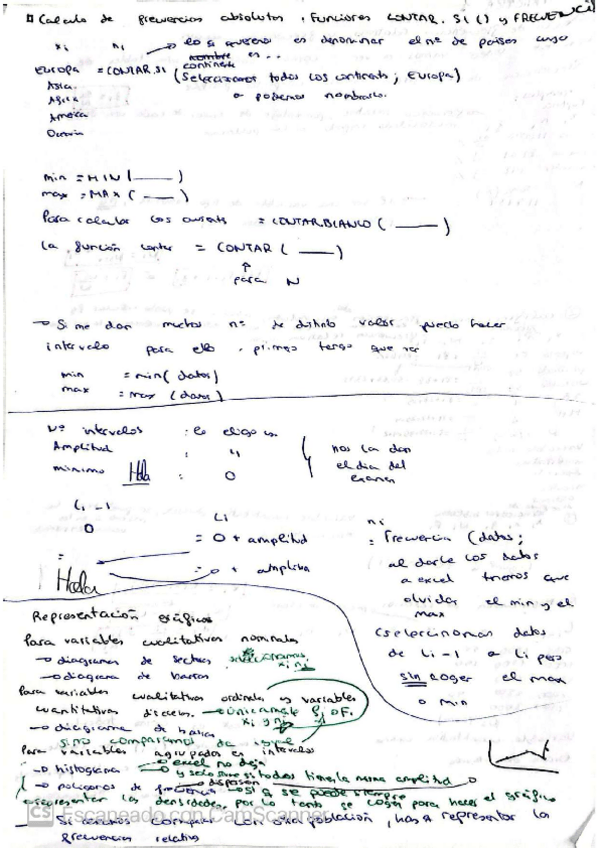 Calculo de frecuencias absolutas. Funciones CONTAR.SI () y FRECUENCIA
xi ni → lo si queremos es denominar el nº de países cuyo
nombre es ..
continente
Europa = CONTAR.SI (Seleccionamos todos los continents; Europa)
Asia o podemos nombrarlo.
Africa
America
Oceania
min = MIN (____)
max = MAX (____)
Para calcular los = CONTAR.BLANCO (____)
La función contar = CONTAR (____)
↑
para N
→ Si me dan muchos nº de distinto valor puedo hacer
intervalo para ello, primero tengo que ver
min = min( datos)
max = max (datos)
Nº intervalos : lo elijo yo
Amplitud : 4 nos la dan
minimo Hola : 0 el dia del
examen
Li-1 Li ni
0 = 0 + amplitud = Frecuencia (datos;
= = 0 + amplitud al darle los datos
Hola a excel tenemos que
olvidar el min y el
max
(seleccionamos datos
de Li-1 a Li pero
sin coger el max
o min
Representación gráfica
Para variables cualitativas nominales
→ diagrama de sectores seleccionamos xi ni
→ diagrama de barras
Para variables cualitativas ordinales y variables
cuantitativas discretas. → únicamente fi o Fi
xi y ni
→ diagrama de barras
si no comparamos da igual
Para variables agrupadas en intervalos
→ excel no deja
→ histograma → y solo sirve si todos tienen la misma amplitud
→ poligonos de frecuencia → si q se puede siempre
representar las densidades, por lo tanto se cogen para hacer el gráfico
CS Escaneado con CamScanner
Si queremos comparar con otra población, hay q representar la
frecuencias relativas